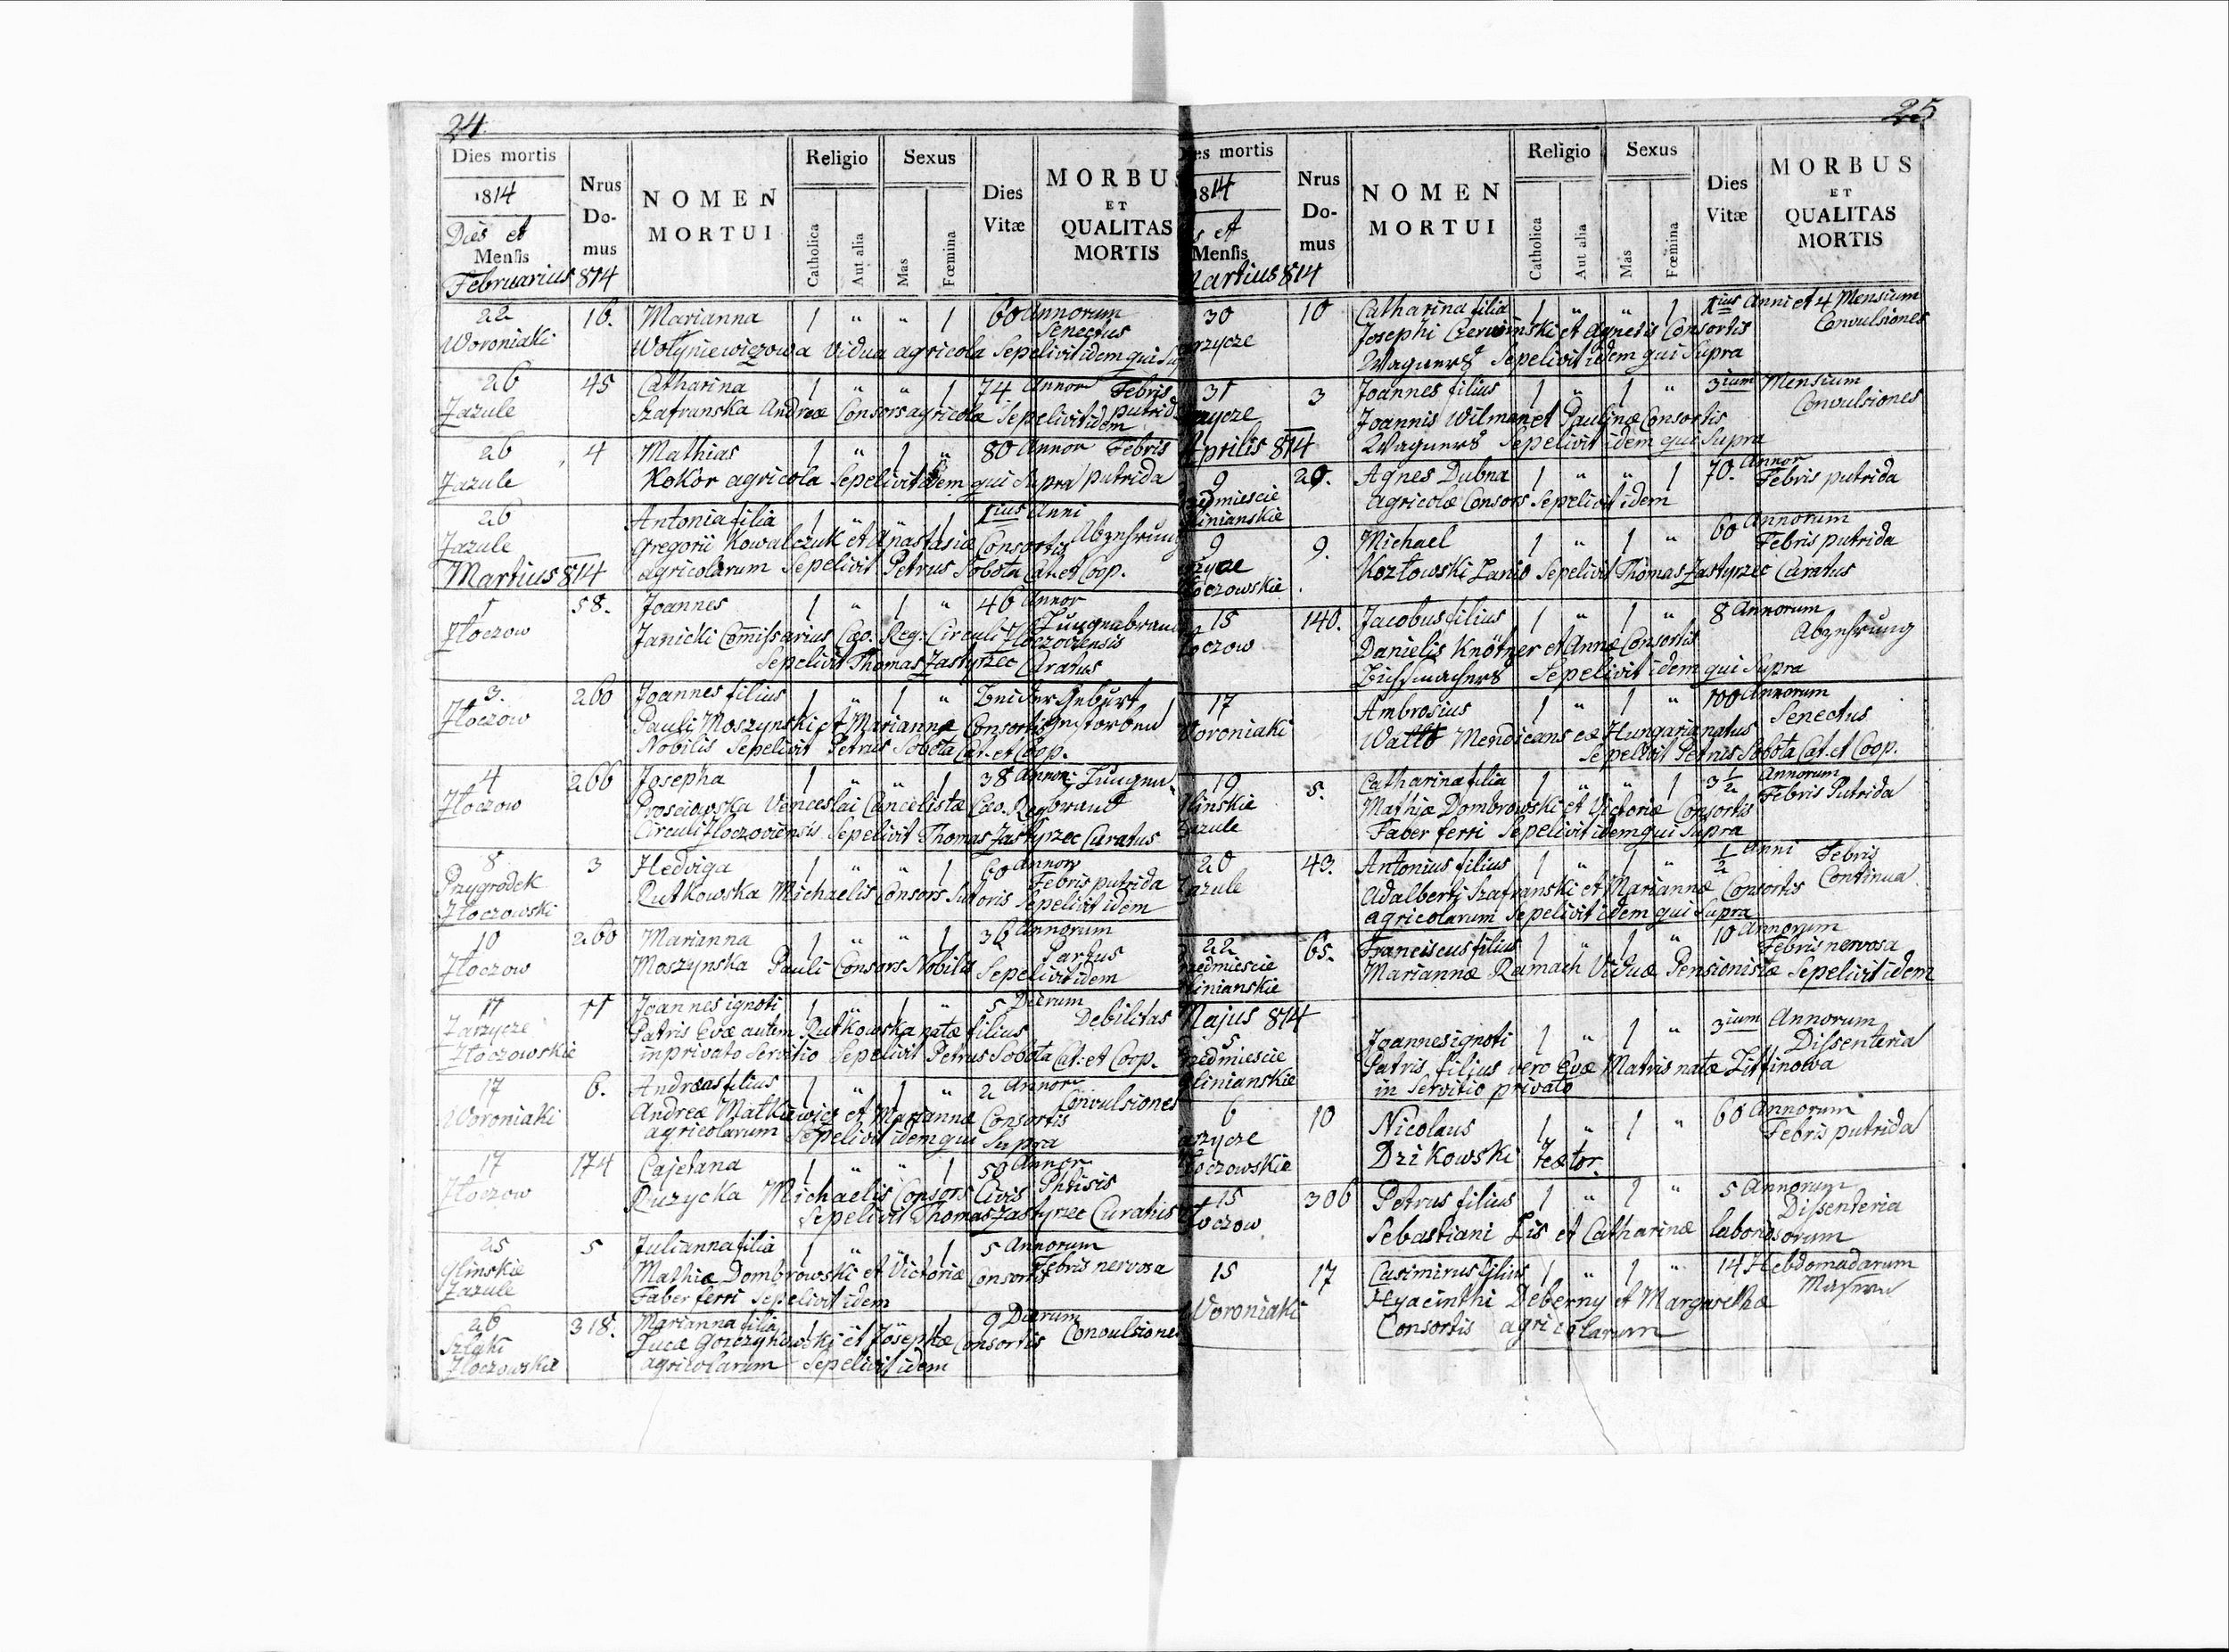 24
Dies mortis
1814
Dies et
Mensis
Februarius 814
Nrus
Do-
mus
NOMEN
MORTUI
Religio
Catholica
Aut alia
Sexus
Mas
Fœmina
Dies
Vitæ
MORBUS
ET
QUALITAS
MORTIS
22 16. Marianna 1 " " 1 60 Annorum
Woroniaki Senectus
Wołyniewiczowa Vidua agricola Sepelivit idem qui
26 45 Catharina 1 " " 1 74 Annor Febris
Zazule Szafranska Andreæ Consors agricolæ Sepelivit idem putrid
26 4 Mathias 1 " 1 " 80 Annor Febris
Zazule Kokor agricola Sepelivit idem qui Supra putrida
26 Antonia filia 1 " " 1 1ius Anni
Zazule Gregorii Kowalczuk et Anastasiæ Consortis Abzehrung
agricolarum Sepelivit Petrus Sobota Cat. et Coop.
Martius 814
1 58. Joannes 1 " 1 " 46 Annor
Złoczow Janicki Comissarius Cæo. Reg. Circuli Złoczoviensis
Sepelivit Thomas Zastyrzec Curatus
3. 260 Joannes filius 1 " 1 " Bei der Geburt
Złoczow Pauli Moszynski et Mariannæ Consortis gestorben
Nobilis Sepelivit Petrus Sobota Cat. et Coop.
4 266 Josepha 1 " " 1 38 Annor Lungen
Złoczow Venceslai Cancelistæ Cæo. Reg brand
Circuli Złoczoviensis Sepelivit Thomas Zastyrzec Curatus
8 3 Hedviga 1 " " 1 60 Annor
Przygrodek Febris putrida
Złoczowski Rutkowska Michaelis Consors Sutoris Sepelivit idem
10 260 Marianna 1 " " 1 36 Annorum
Złoczow Partus
Moszynska Pauli Consors Nobilis Sepelivit idem
11 11 Joannes ignoti 1 " 1 " 5 Dierum
Zarzycze Patris Evæ autem Rutkowska natæ filius Debilitas
Złoczowskie in privato Servitio Sepelivit Petrus Sobota Cat. et Coop.
17 6. Andreas filius 1 " 1 " 2 Annor
Woroniaki Andreæ Matkiewicz et Mariannæ Consortis Convulsiones
agricolarum Sepelivit idem qui Supra
17 174 Cajetana 1 " " 1 50 Annor
Złoczow Ruzycka Michaelis Consors Civis Phtisis
Sepelivit Thomas Zastyrzec Curatus
25 5 Julianna filia 1 " " 1 5 Annorum
Glinskie Mathiæ Dombrowski et Victoriæ Consortis Febris nervosa
Zazule Faber ferri Sepelivit idem
26 318. Marianna filia 1 " " 1 9 Dierum
Szlaki Lucæ et Josephæ Consortis Convulsiones
Złoczowskie agricolarum Sepelivit idem
25
es mortis
814
s et
Mensis
artius 814
Nrus
Do-
mus
NOMEN
MORTUI
Religio
Catholica
Aut alia
Sexus
Mas
Fœmina
Dies
Vitæ
MORBUS
ET
QUALITAS
MORTIS
30 10 Catharina filia 1 " " 1 1ius Anni et 4 Mensium
arzycze Josephi et Agnetis Consortis Convulsiones
Wagners Sepelivit idem qui Supra
31 3 Joannes filius 1 " 1 " 3ium Mensium
Joannis Wilman et Paulinæ Consortis Convulsiones
Wagners Sepelivit idem qui Supra
Aprilis 814
9 29. Agnes Dubna 1 " " 1 70. Annor
edmiescie Febris putrida
linianskie Agricolæ Consors Sepelivit idem
9 9. Michael 1 " 1 " 60 Annorum
Febris putrida
oczowskie Kozłowski Lanio Sepelivit Thomas Zastyrzec Curatus
15 140. Jacobus filius 1 " 1 " 8 Annorum
oczow Danielis Knötzer et Annæ Consortis Abzehrung
Sepelivit idem qui Supra
17 Ambrosius 1 " 1 " 100 Annorum
Woroniaki Senectus
Mendicans ex Hungaria natus
Sepelivit Petrus Sobota Cat. et Coop.
19 5. Catharina filia 1 " " 1 3 1/2 Annorum
linskie Mathiæ Dombrowski et Victoriæ Consortis Febris Putrida
Zazule Faber ferri Sepelivit idem qui Supra
20 43. Antonius filius 1 " 1 " 1/2 Anni Febris
Zazule Adalberti Szafranski et Mariannæ Consortis Continua
agricolarum Sepelivit idem qui Supra
22 65. Franciscus filius 1 " 1 " 10 Annorum
edmiescie Febris nervosa
linianskie Mariannæ Ramach Viduæ Pensionistæ Sepelivit idem
Majus 814
5 Joannes ignoti 1 " 1 " 3ium Annorum
edmiescie Dissenteria
Glinianskie Patris filius vero Evæ Matris natæ
in Servitio privato
6 10 Nicolaus 1 " 1 " 60 Annorum
arzycze Febris putrida
oczowskie Dzikowski Textor.
15 306 Petrus filius 1 " 1 " 5 Annorum
oczow Dissenteria
Sebastiani Lis et Catharinæ laboriosorum
15 17 Casimirus filius 1 " 1 " 14 Hebdomadarum
Woroniaki Hyacinthi Deberny et Margarethæ
Consortis agricolarum